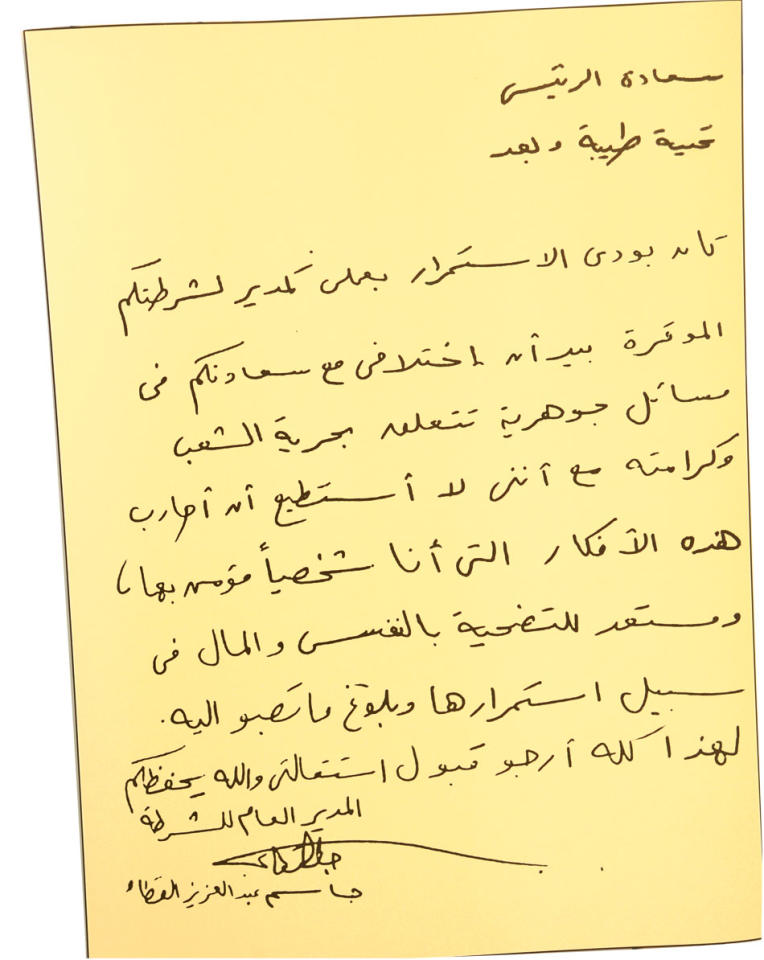 سعادة الرئيس
تحية طيبة وبعد
كان بودى الاستمرار بعملى كمدير لشرطتكم
الموقرة بيد أن إختلافى مع سعادتكم فى
مسائل جوهرية تتعلق بحرية الشعب
وكرامته مع أننى لا أستطيع أن أحارب
هذه الأفكار التى أنا شخصياً مؤمن بها،
ومستعد للتضحية بالنفس والمال فى
سبيل استمرارها وبلوغ ما تصبو اليه.
لهذا كله أرجو قبول استقالتى والله يحفظكم
المدير العام للشرطة
جاسم عبدالعزيز القطامى